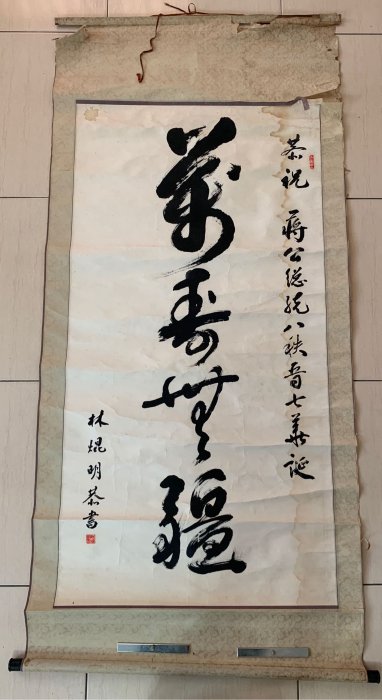 恭祝 蔣公總統八秩晉七華誕
萬壽無疆
林焜明恭書